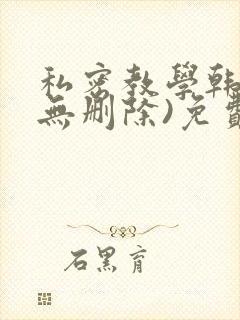 私密教學韩
無删除)免費
石黑育